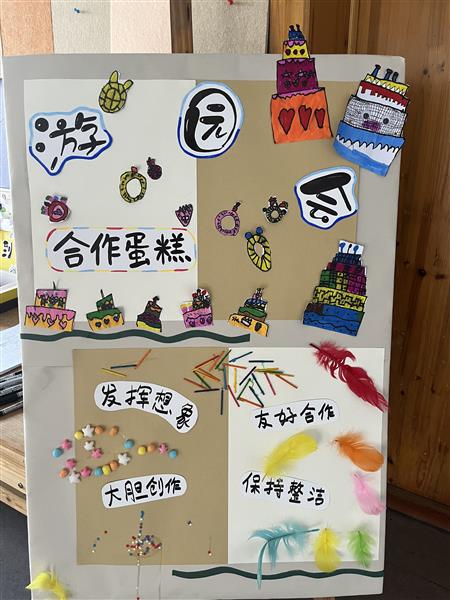 游园会
合作蛋糕
发挥想象
友好合作
大胆创作
保持整洁